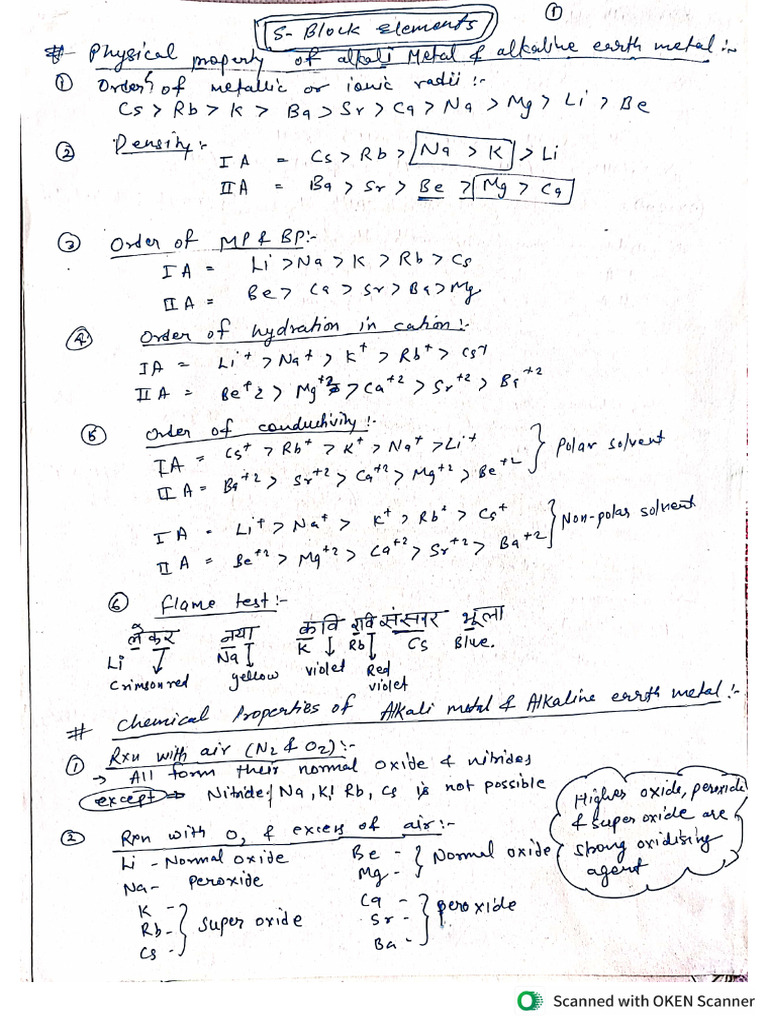 ①
S-Block elements
# Physical property of alkali Metal & alkaline earth metal:-
① Order of metallic or ionic radii:-
Cs > Rb > K > Ba > Sr > Ca > Na > Mg > Li > Be
② Density:-
IA = Cs > Rb > Na > K > Li
IIA = Ba > Sr > Be > Mg > Ca
③ Order of MP & BP:-
IA = Li > Na > K > Rb > Cs
IIA = Be > Ca > Sr > Ba > Mg
④ Order of hydration in cation:-
IA = Li+ > Na+ > K+ > Rb+ > Cs+
IIA = Be+2 > Mg+2 > Ca+2 > Sr+2 > Ba+2
⑤ order of conductivity:-
IA = Cs+ > Rb+ > K+ > Na+ > Li+
IIA = Ba+2 > Sr+2 > Ca+2 > Mg+2 > Be+2
} Polar solvent
IA = Li+ > Na+ > K+ > Rb+ > Cs+
IIA = Be+2 > Mg+2 > Ca+2 > Sr+2 > Ba+2
} Non-polar solvent
⑥ flame test:-
लेकर नया कवि रवि संसार भूला
Li Na K Rb Cs Blue.
Crimson red yellow violet Red violet
# Chemical Properties of Alkali metal & Alkaline earth metal:-
① Rxn with air (N2 & O2):-
→ All form their normal oxide & nitrides
except → Nitride; Na, K, Rb, Cs is not possible
② Rxn with O2 & excess of air:-
Li - Normal oxide
Na - Peroxide
K -
Rb -
Cs -
} Super oxide
Be -
Mg -
} Normal oxide
Ca -
Sr -
Ba -
} peroxide
Higher oxide, peroxide
& super oxide are
strong oxidising
agent
Scanned with OKEN Scanner